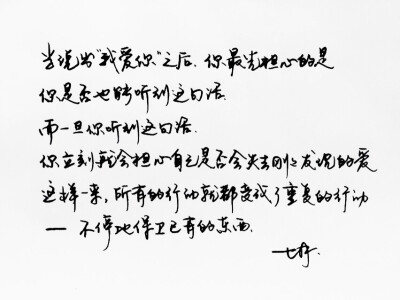 当说出“我爱你”之后,你最先担心的是
你是否也能听到这句话.
而一旦你听到这句话.
你立刻就会担心自己是否会失去刚刚发现的爱
这样一来,所有的行动就都变成了重复的行动
— 不停地保卫已有的东西.